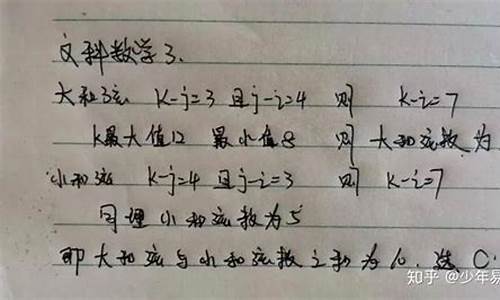 文科数学3.
大和弦 k-j=3 且j-i=4 则 k-i=7
k最大值12 最小值8 则 大和弦数为
小和弦 k-j=4 且j-i=3 则 k-i=7
同理小和弦数为5
即大和弦与小和弦数之和为10.选C.
知乎 @少年易